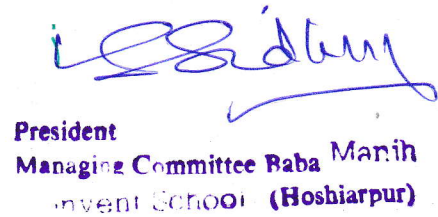 President
Managing Committee Baba Manih
School (Hoshiarpur)